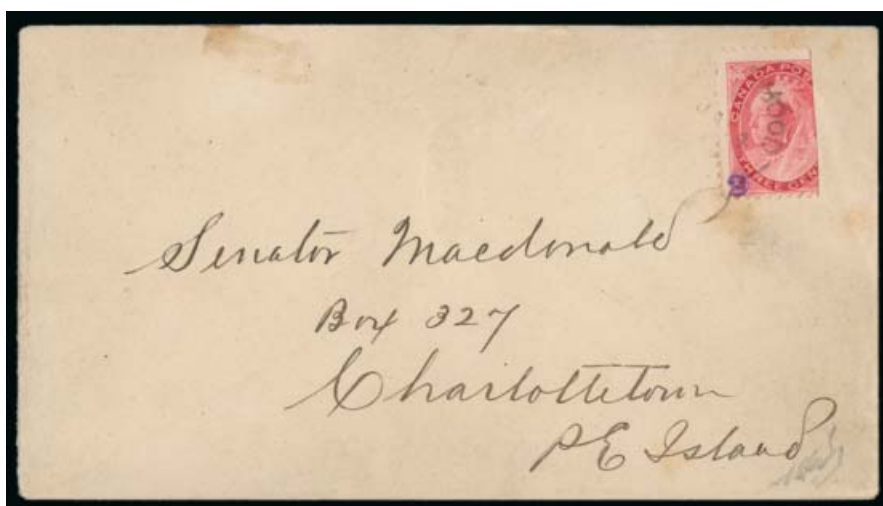 CANADA POS
THREE CEN
3
Senator Macdonald
Box 327
Charlottetown
P E Island